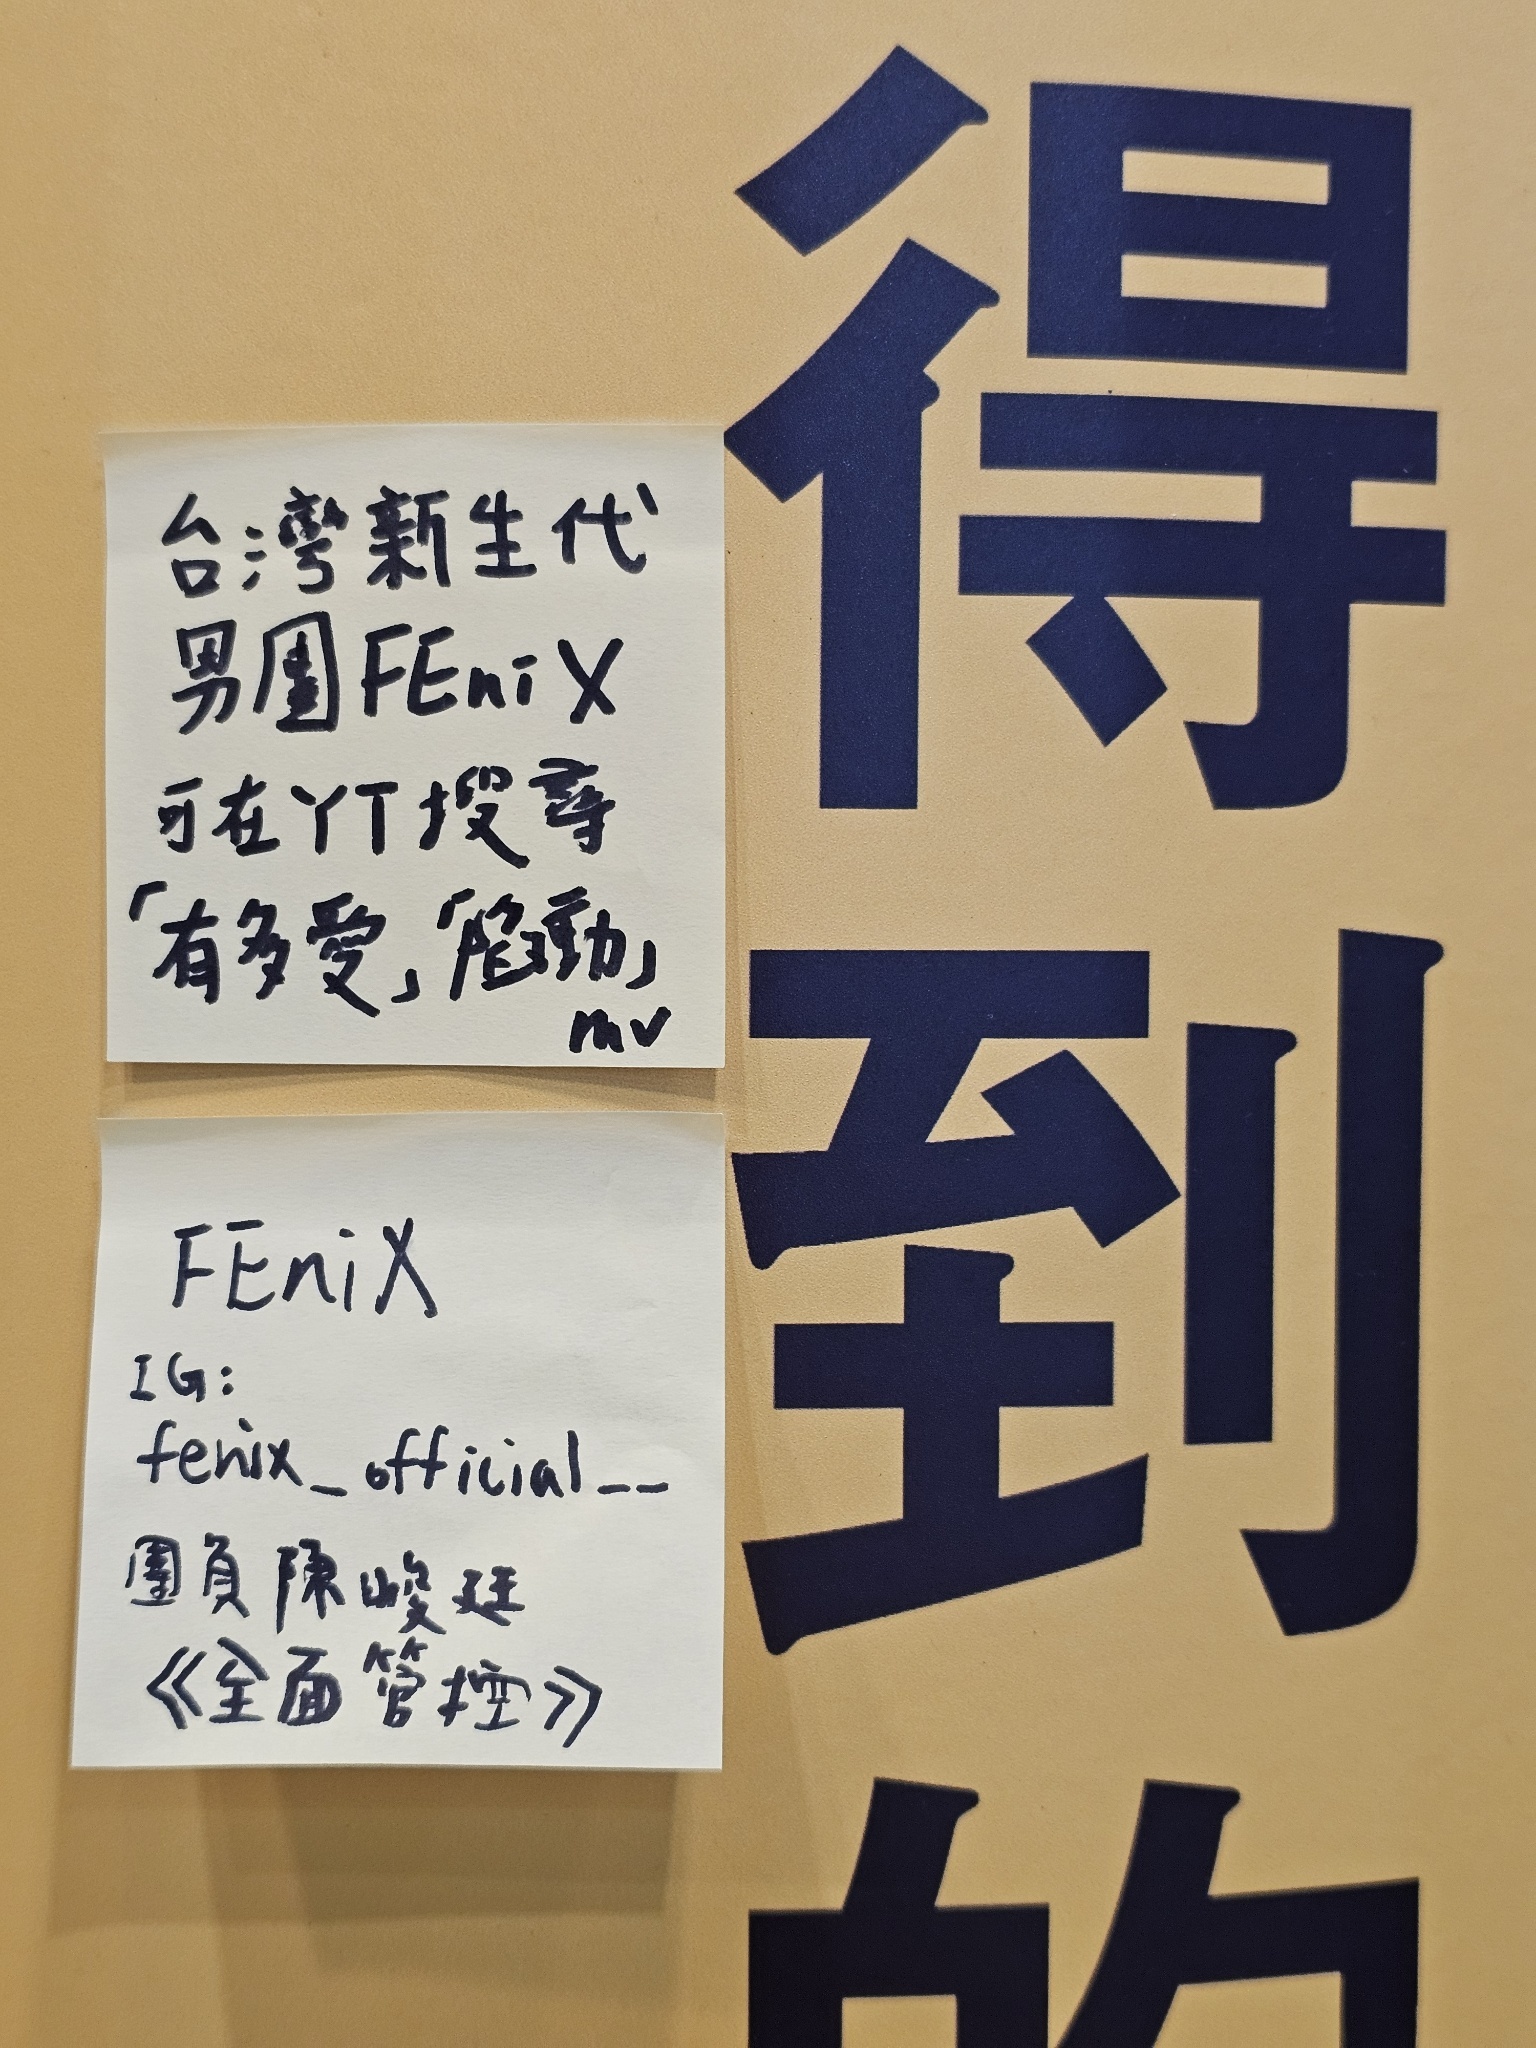 台灣新生代
男團FEniX
可在YT搜尋
「有多愛」「陷動」
mv
FEniX
IG:
fenix_official__
團員陳峻廷
《全面管控》
得到的